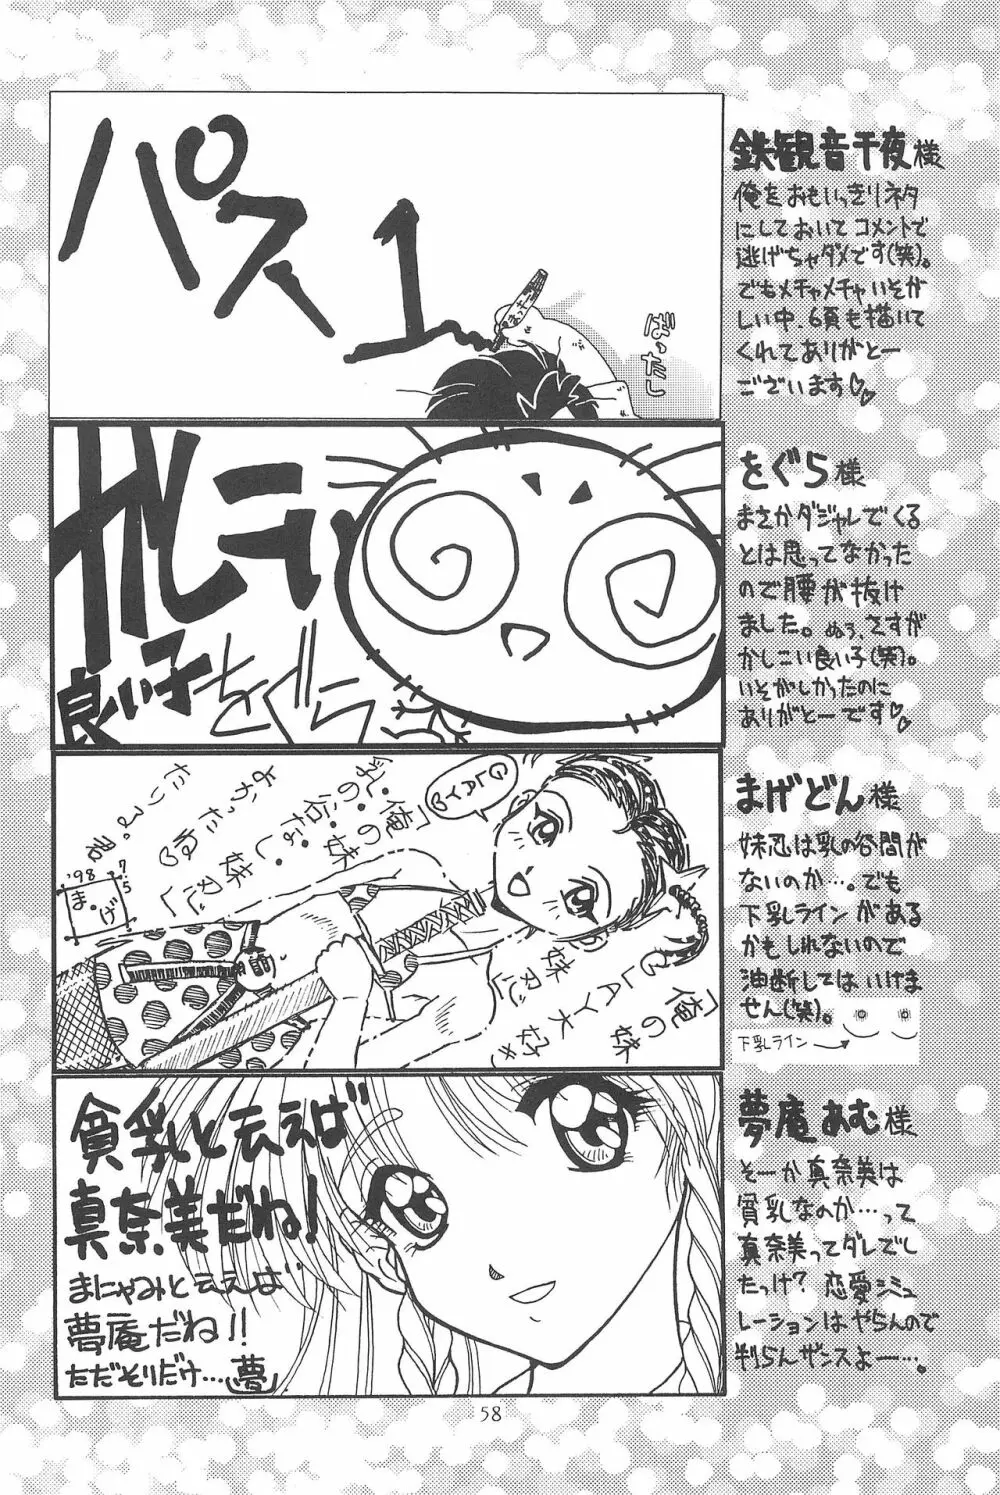 パス1
ばったし
鉄観音千夜様
俺をおもいっきりネタ
にしておいてコメントで
逃げちゃダメです(笑)。
でもメチャメチャいそが
しい中、6頁も描いて
くれてありがとー
ございます♡♡
かしこい
良い子
をぐら
をぐら様
まさかダジャレでくる
とは思ってなかった
ので腰が抜け
ました。ぬぅ、さすが
かしこい良い子(笑)。
いそがしかったのに
ありがとーです♡♡
GLAY♡
「俺の妹
GLAY大好き
妹忍」
「俺の妹
乳の谷なし
妹忍」
よかったね♡
たりぶ君
'98 7/5
まげ
まげどん様
妹忍は乳の谷間が
ないのか…。でも
下乳ラインがある
かもしれないので
油断してはいけま
せん(笑)。
下乳ライン→
貧乳と云えば
真奈美だね!
まにゃみと云えば
夢庵だね!!
ただそりだけ…(夢)
夢庵あむ様
そーか真奈美は
貧乳なのか…って
真奈美ってダレでし
たっけ? 恋愛シミュ
レーションはやらんので
判らんザンスよー…。
58